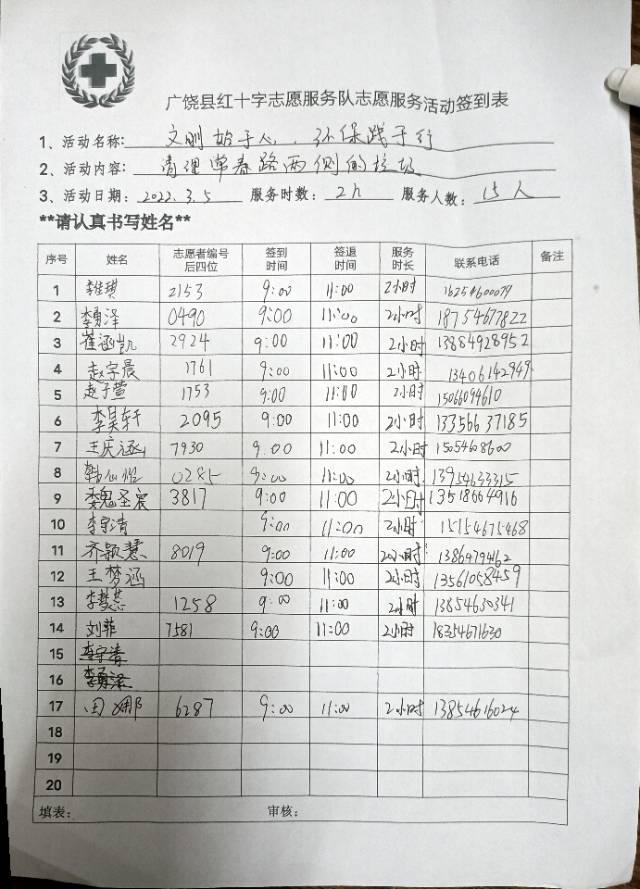 广饶县红十字志愿服务队志愿服务活动签到表
1、活动名称: 文明始于人，环保践于行
2、活动内容: 清理常春路两侧的垃圾
3、活动日期: 2022.3.5 服务时数: 2h 服务人数: 15人
**请认真书写姓名**
序号 姓名 志愿者编号后四位 签到时间 签退时间 服务时长 联系电话 备注
1 李维琪 2153 9:00 11:00 2小时 16254600079
2 李勇泽 0490 9:00 11:00 2小时 18754677822
3 崔涵凯 2924 9:00 11:00 2小时 13884928952
4 赵宇晨 1761 9:00 11:00 2小时 13406142949
5 赵子萱 1753 9:00 11:00 2小时 15066094610
6 李昊轩 2095 9:00 11:00 2小时 13356637185
7 王庆涵 7930 9:00 11:00 2小时 15054608600
8 韩仙怡 0285 9:00 11:00 2小时 13954633315
9 魏圣宸 3817 9:00 11:00 2小时 13518664916
10 李宇清 9:00 11:00 2小时 15154675468
11 齐颖慧 8019 9:00 11:00 2小时 1386479462
12 王梦涵 9:00 11:00 2小时 13561058459
13 李梦蕊 1258 9:00 11:00 2小时 13854630341
14 刘菲 7581 9:00 11:00 2小时 18354671630
15 李宇清
16 李勇泽
17 田娜 6287 9:00 11:00 2小时 13854616024
18
19
20
填表: 审核: